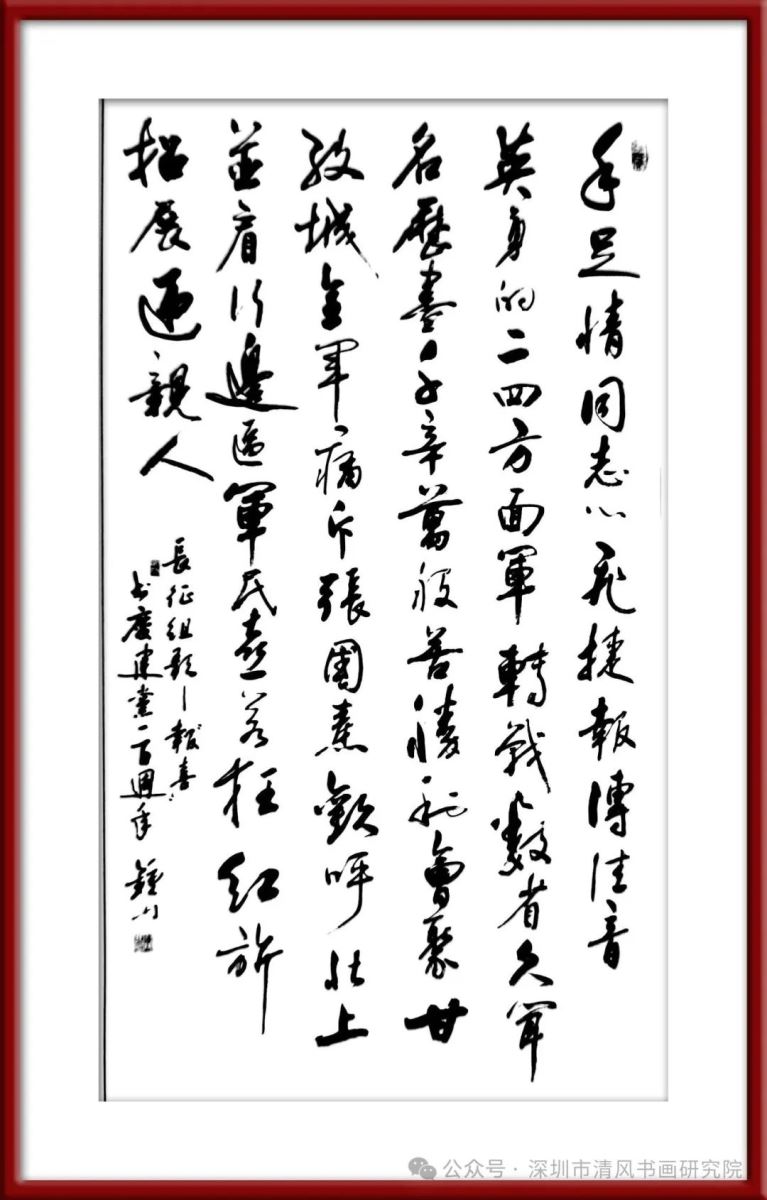 手足情同志心飛捷報傳佳音
英勇的二四方面軍轉戰數省久聞
名歷盡千辛萬般苦勝利會聚甘
孜城全軍痛斥張國燾歡呼北上
並肩行邊區軍民喜若狂紅旗
招展迎親人
長征組歌—報喜
書慶建黨一百週年
公众号·深圳市清风书画研究院